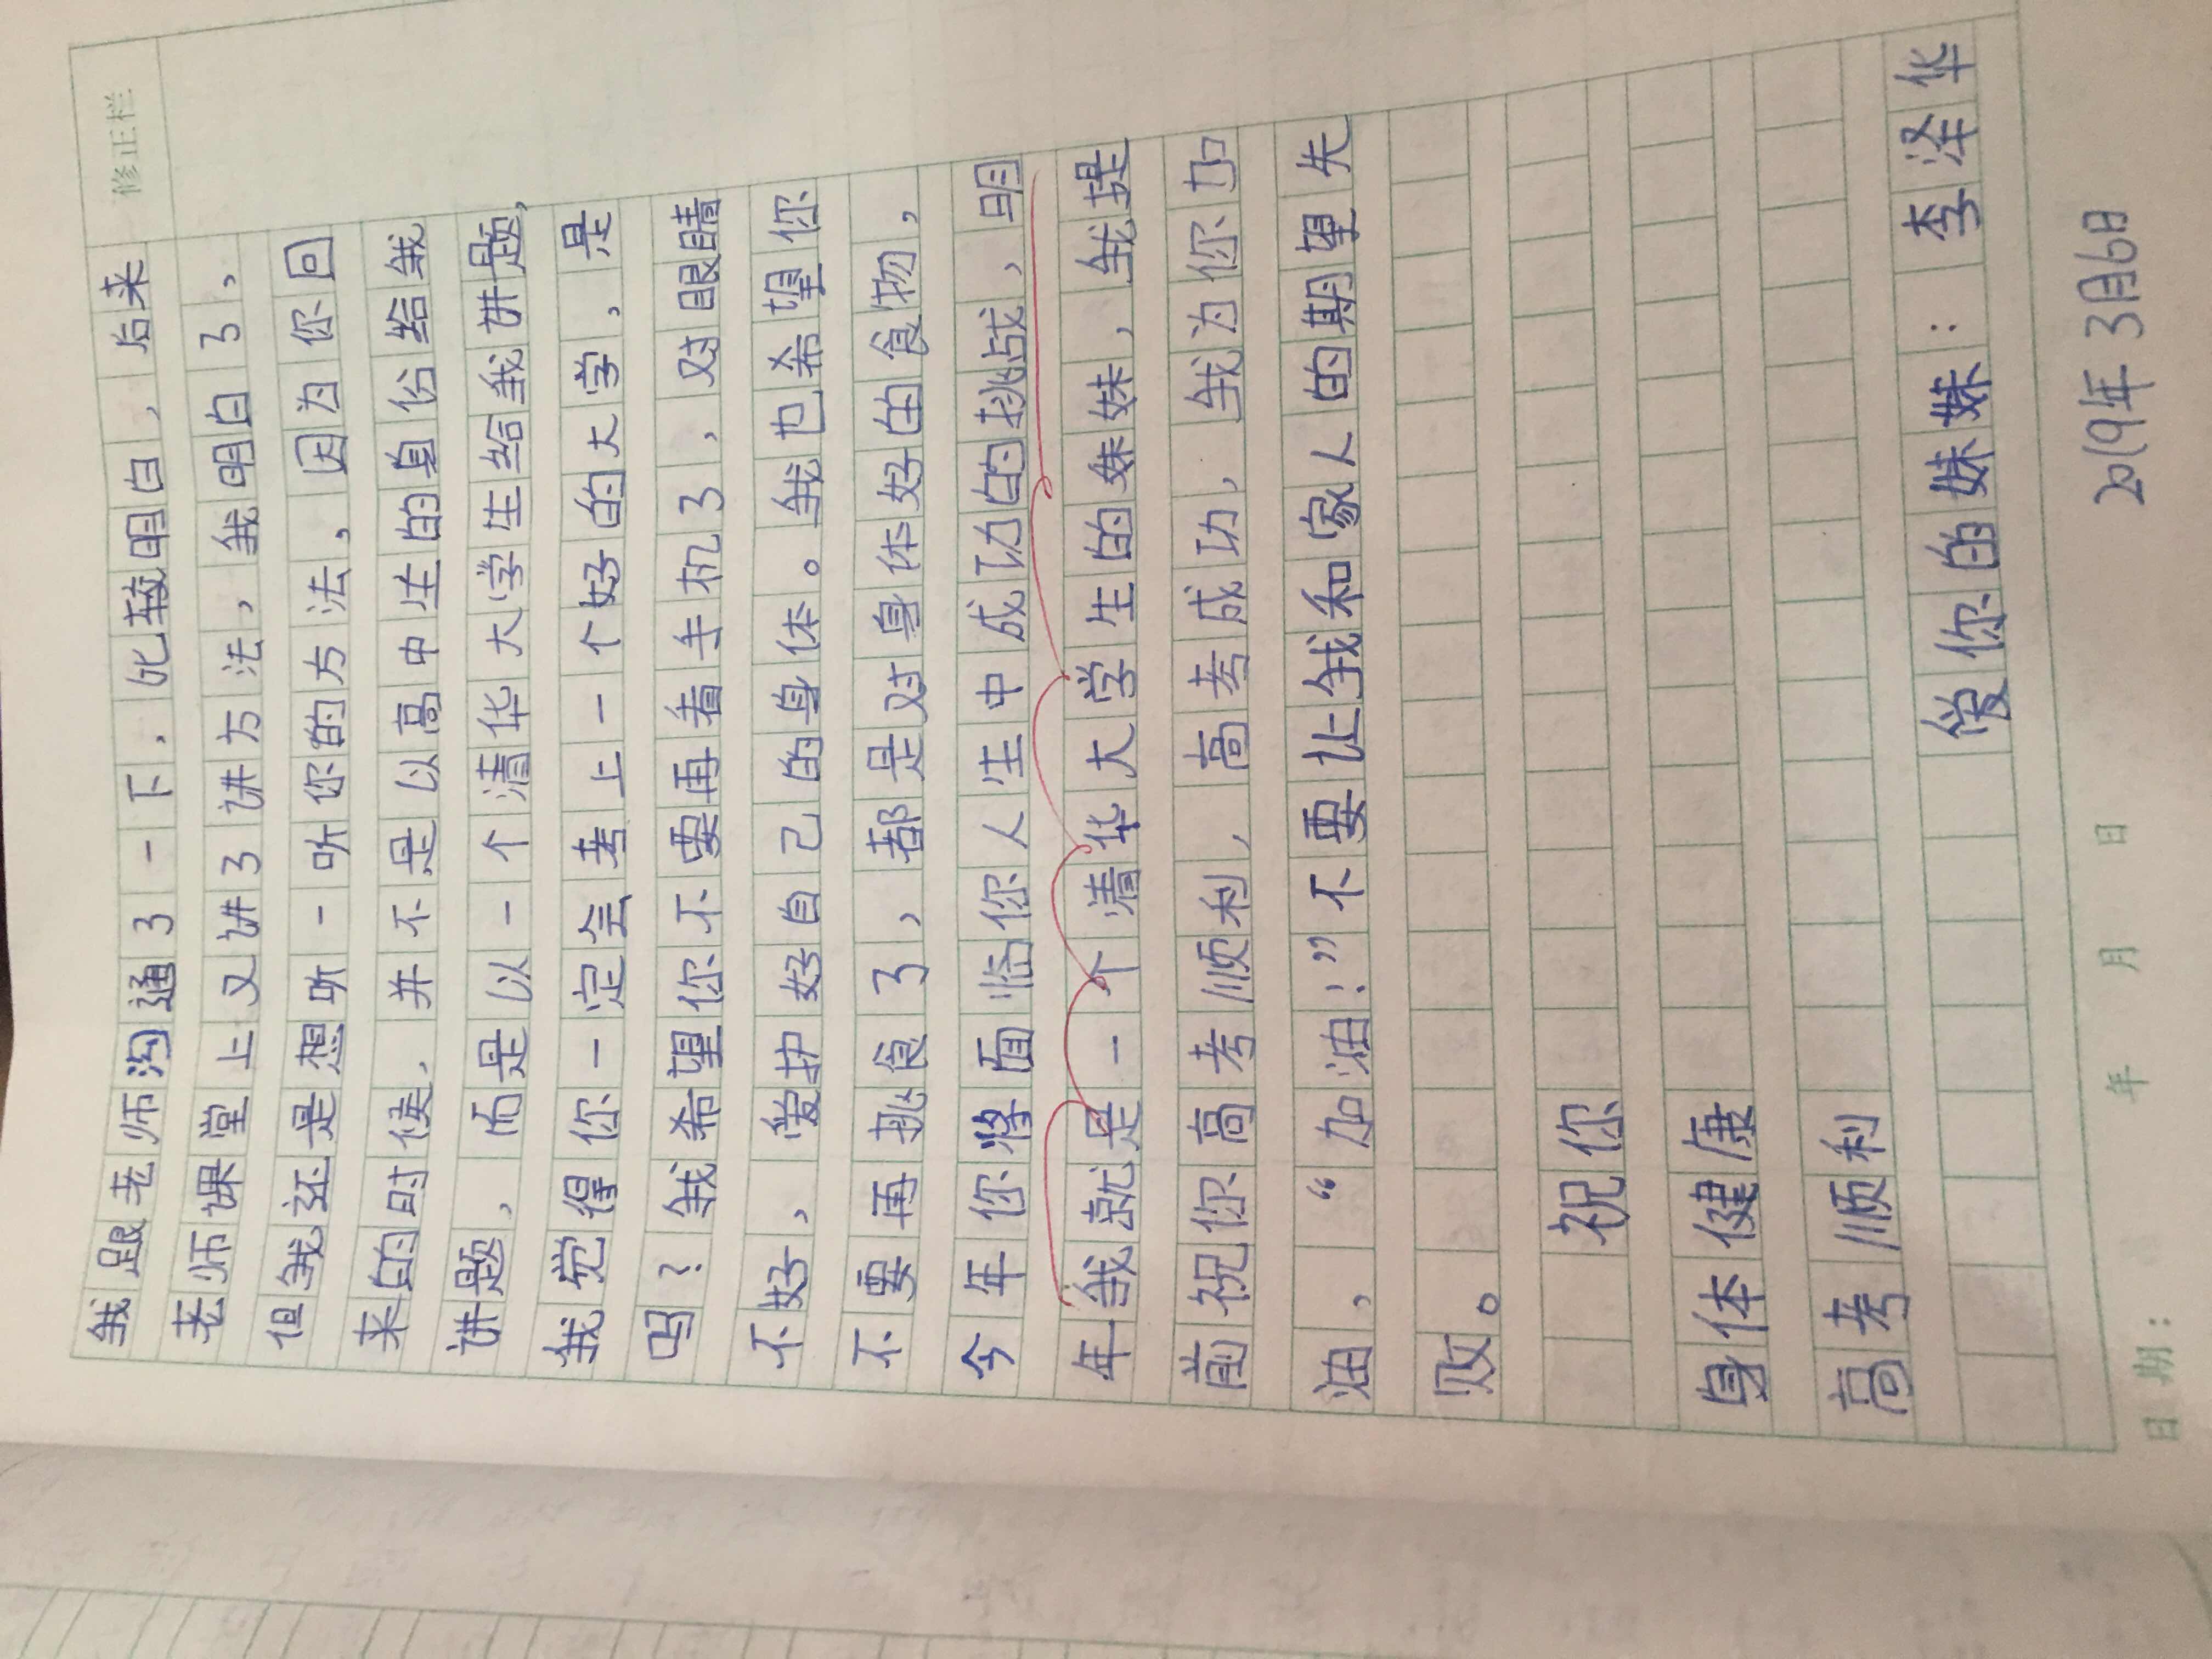 修正栏
我跟老师沟通了一下，比较明白，后来
老师课堂上又讲了讲方法，我明白了，
但我还是想听一听你的方法，因为你回
来的时侯，并不是以高中生的身份给我
讲题，而是以一个清华大学生给我讲题，
我觉得你一定会考上一个好的大学，是
吗？我希望你不要再看手机了，对眼睛
不好，爱护好自己的身体。我也希望你
不要再挑食了，都是对身体好的食物，
今年你将面临你人生中成功的挑战，明
年我就是一个清华大学生的妹妹，我提
前祝你高考顺利，高考成功，我为你加
油，“加油！”不要让我和家人的期望失
败。
祝你
身体健康
高考顺利
爱你的妹妹：李泽华
日期： 年 月 日 2019年3月6日